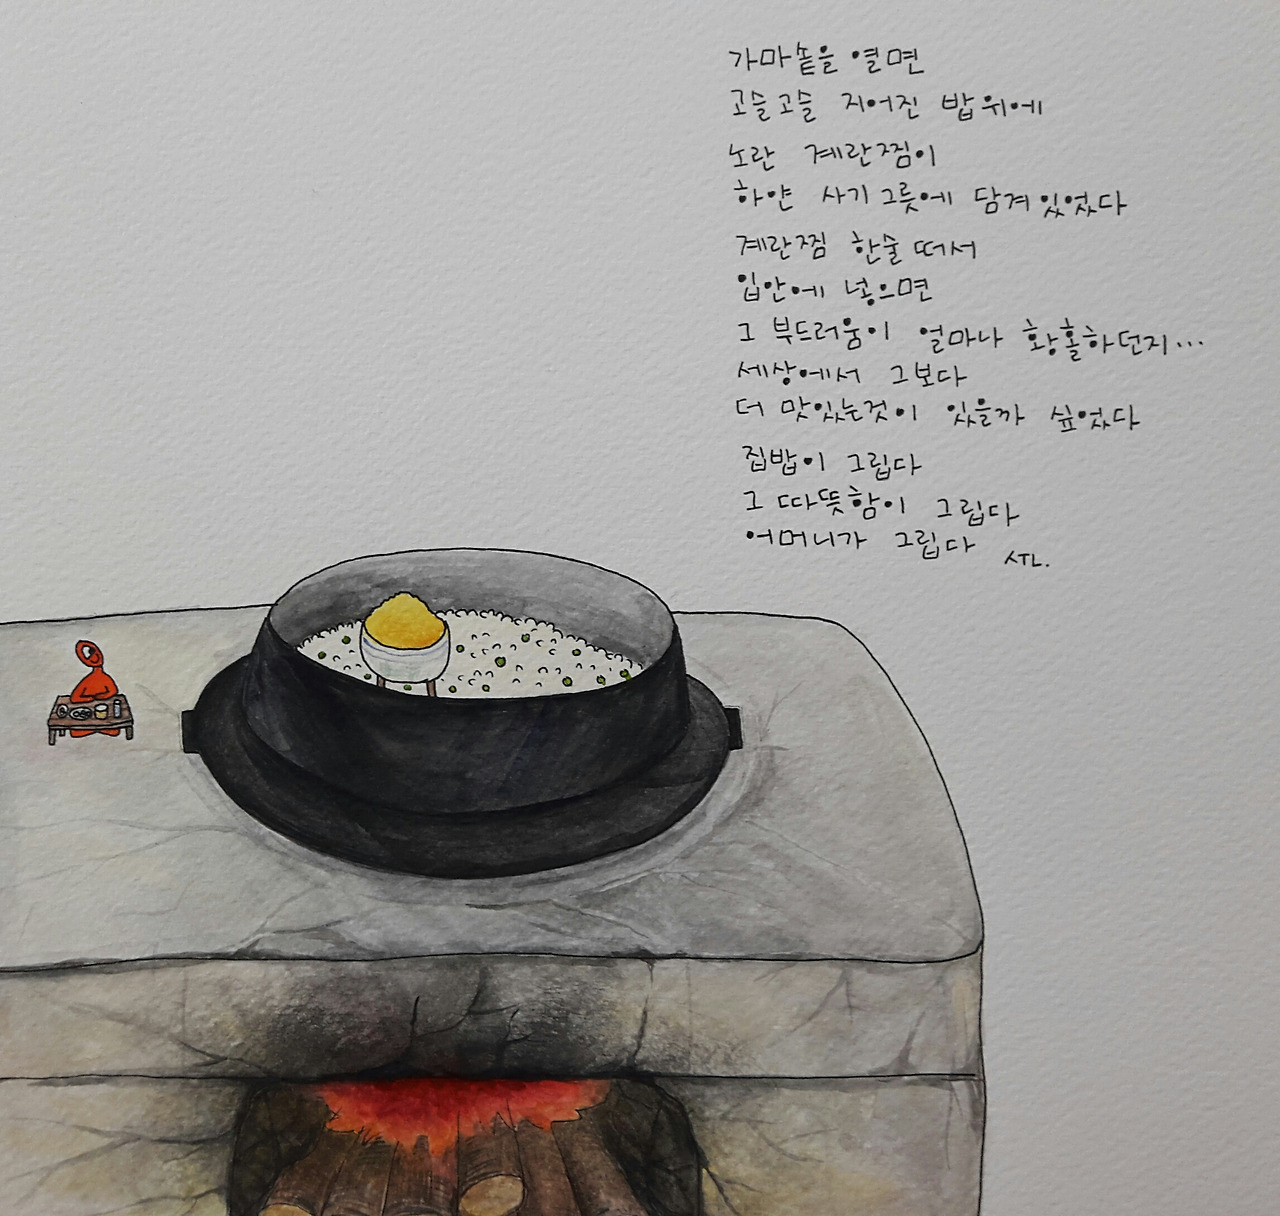 가마솥을 열면
고슬고슬 지어진 밥위에
노란 계란찜이
하얀 사기그릇에 담겨있었다
계란찜 한술 떠서
입안에 넣으면
그 부드러움이 얼마나 황홀하던지...
세상에서 그보다
더 맛있는것이 있을까 싶었다
집밥이 그립다
그 따뜻함이 그립다
어머니가 그립다
STL.